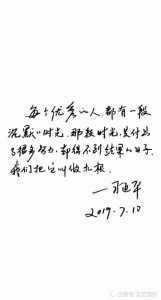 每个优秀的人都有一段
沉默的时光,那段时光,是付出
了很多努力,却得不到结果的日子,
我们把它叫做扎根.
2019.7.10